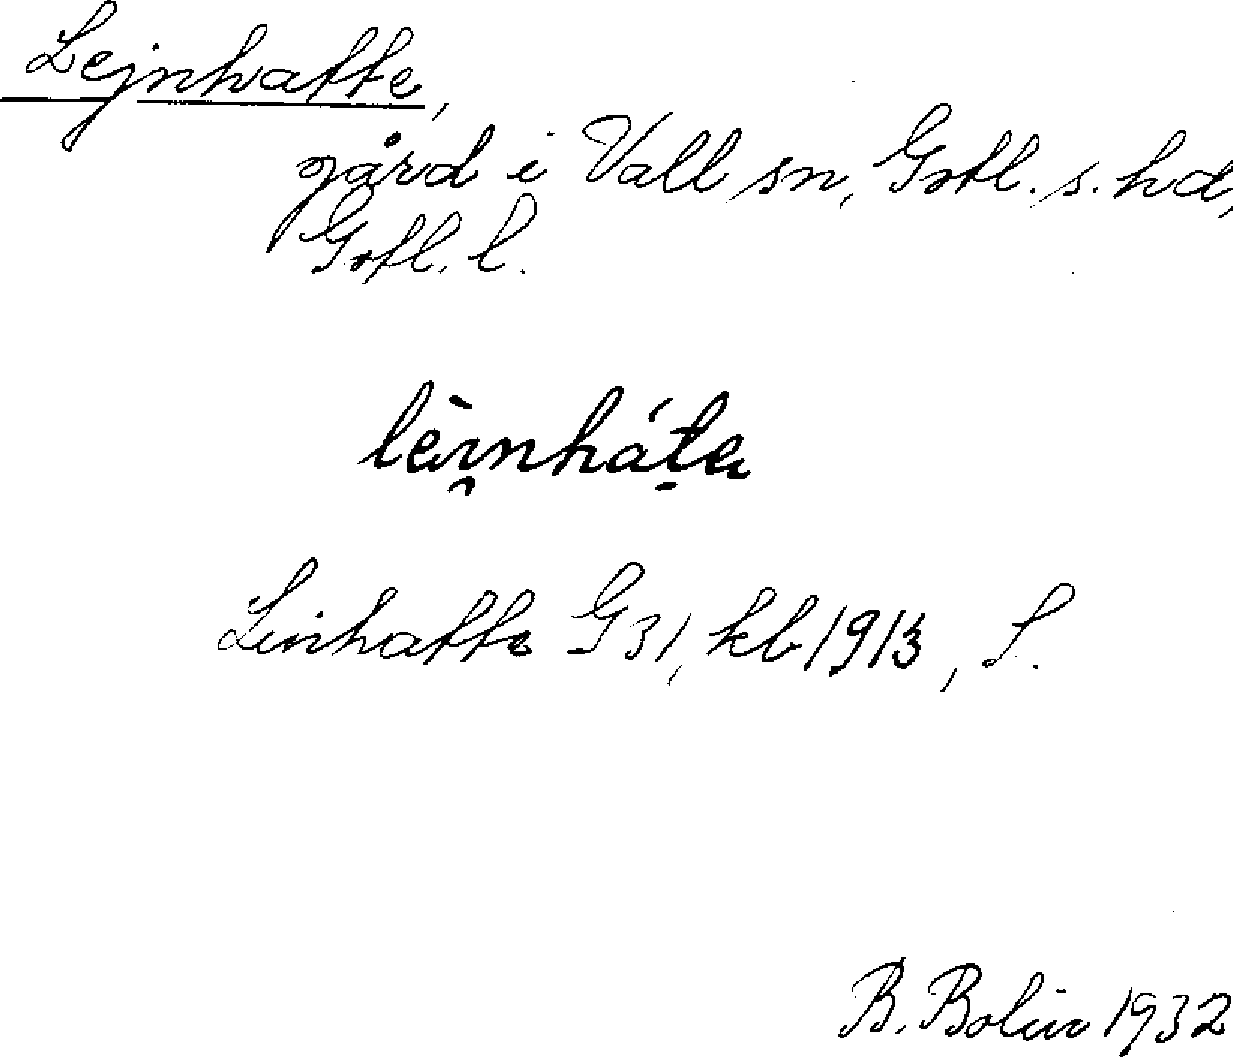 Lejnhatte,
gård i Vall sn, Gotl. s. hd,
Gotl. l.
lèi̯nháta
Leinhatte G31, kb 1913, S.
B. Bolin 1932